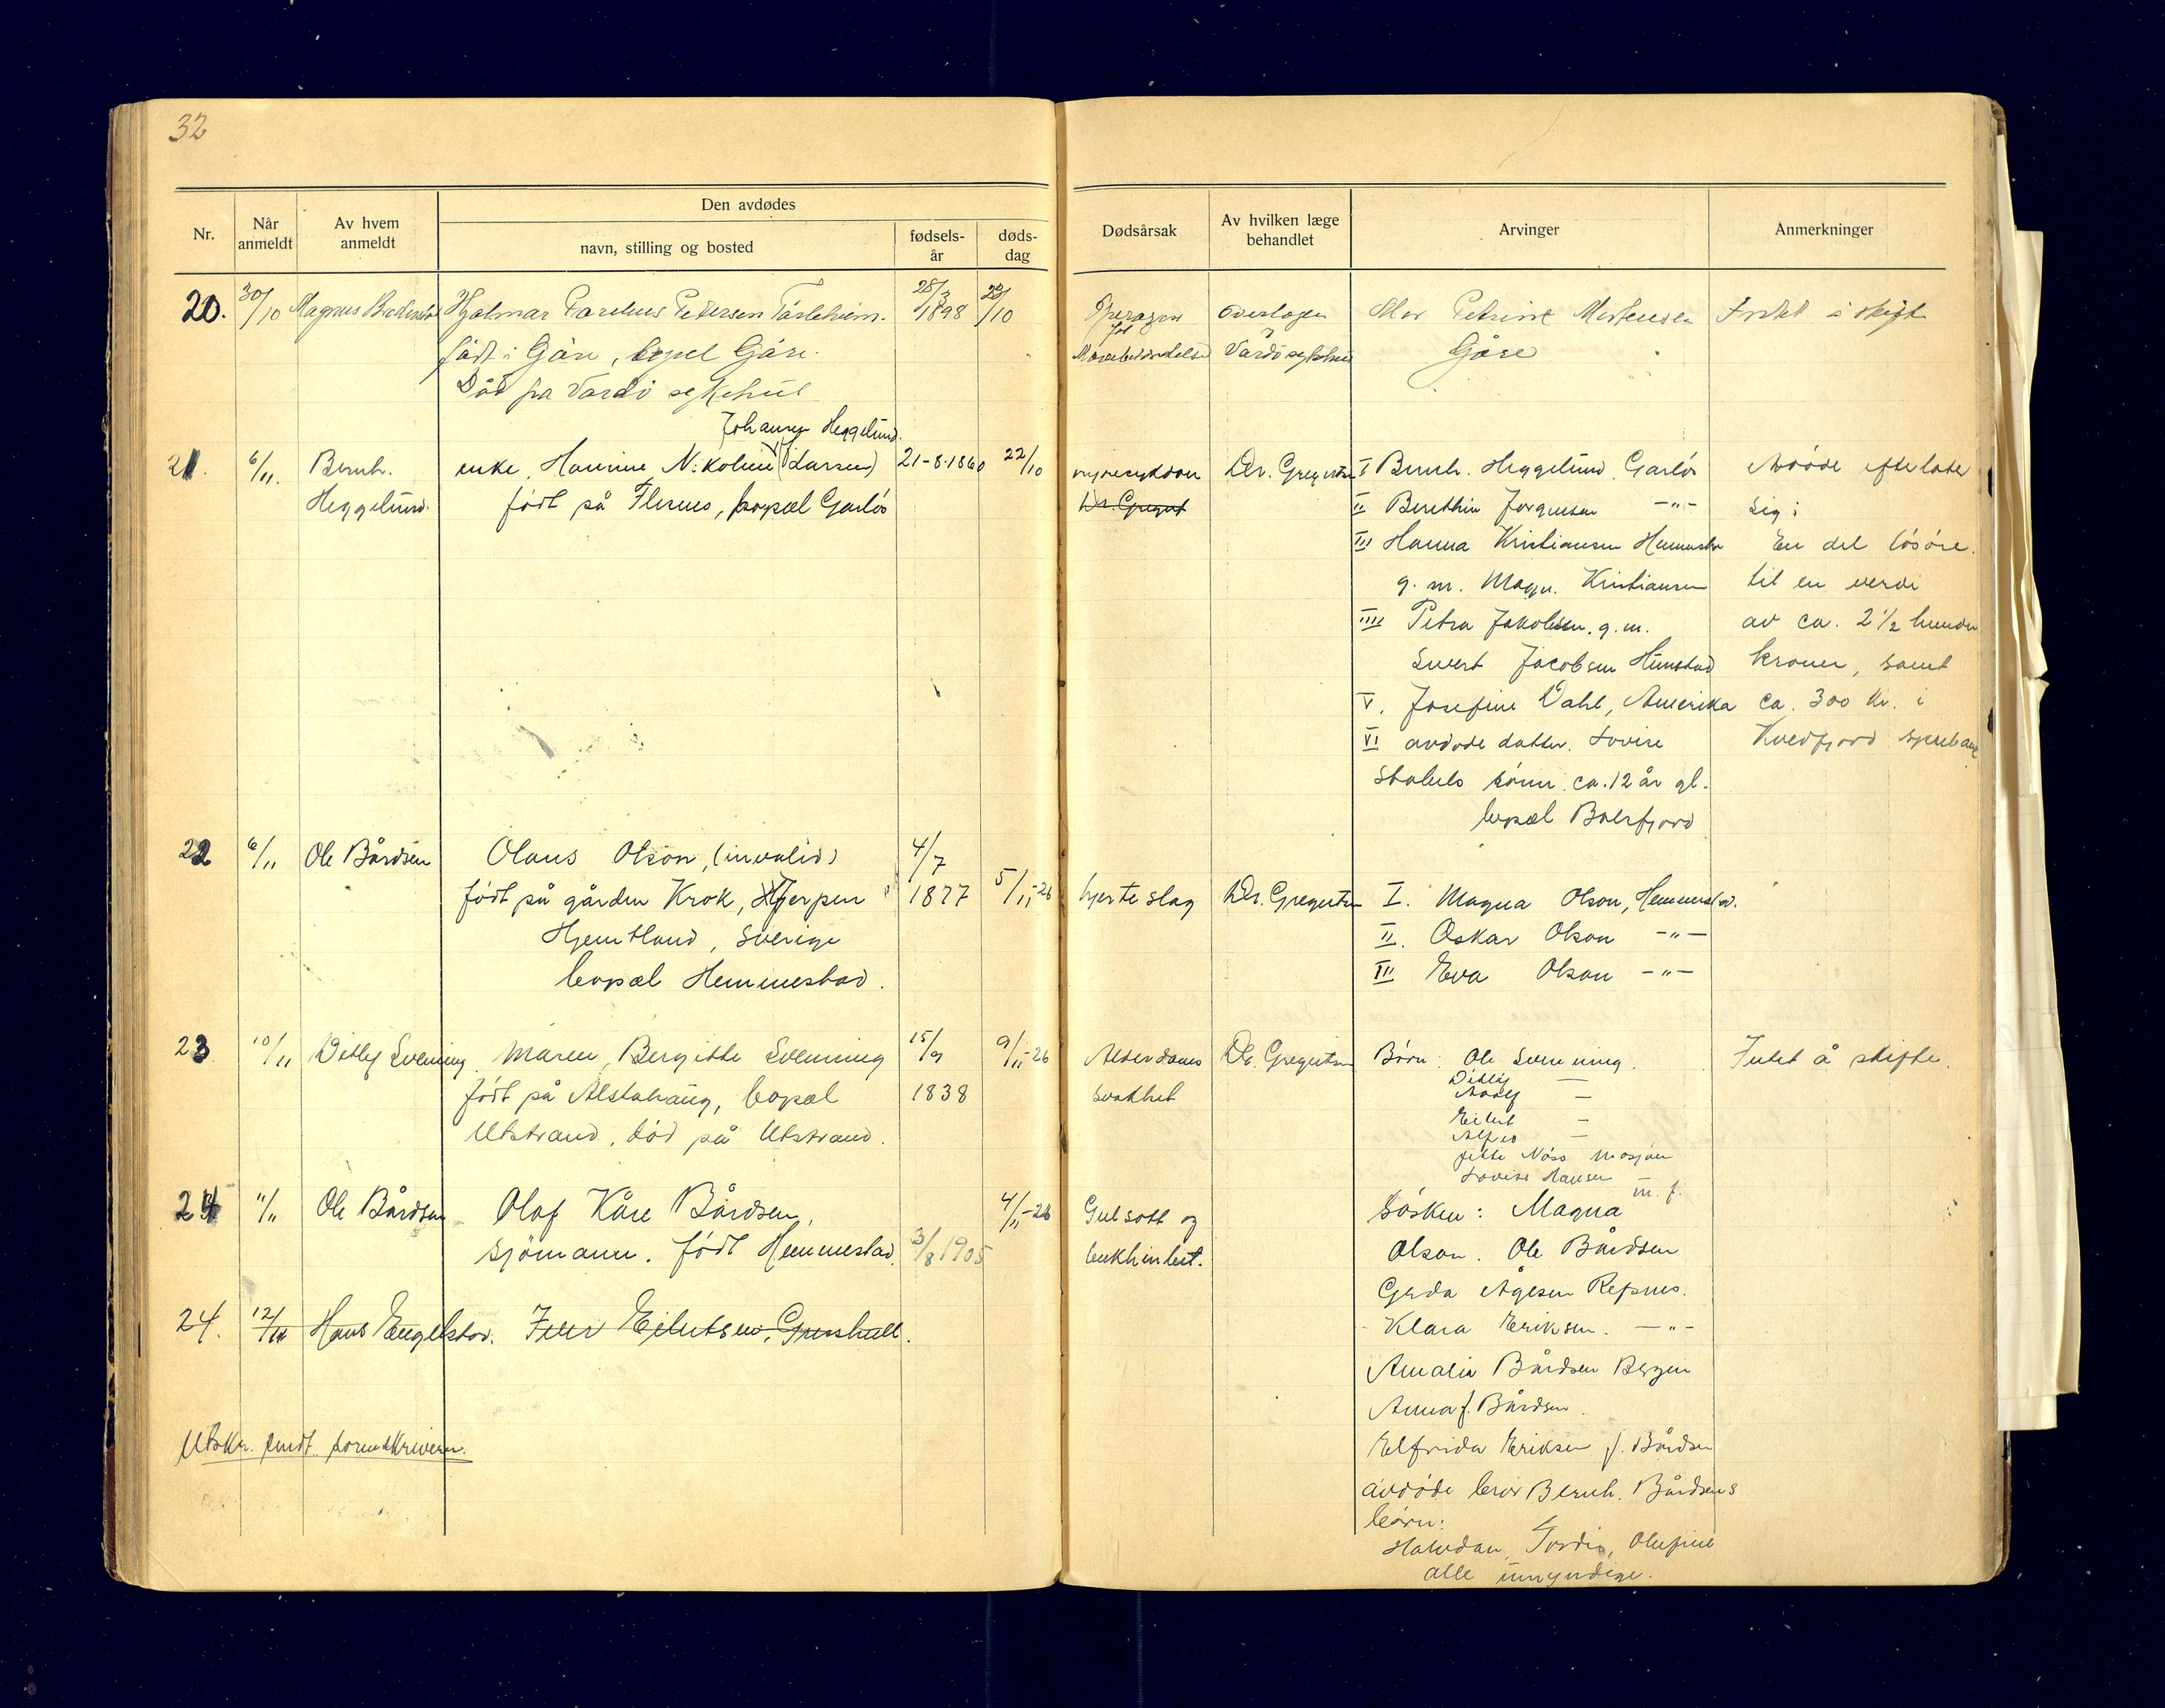 32
Nr.
Når anmeldt
Av hvem anmeldt
Den avdødes
navn, stilling og bosted
fødsels-år
døds-dag
Dødsårsak
Av hvilken læge behandlet
Arvinger
Anmerkninger
20. 30/10 Magnus Hjalmar Petersen 28/3 1898 /10
født i Gåre, bopel Gåre.
Død på Vardö sykehus
Operasjon for
overlægen Vardö sykehus
Mor Petrine Mortensen
Gåre
Intet å skifte
Johansen Heggelund.
21. 6/11. Bernh. enke, Hannine Nikoline (Larsen) 21-8-1860 22/10
Heggelund. født på Flesnes, bopæl Garlös
nyresykdom Dr. Gregertsen
Dr. Gregert
I Bernh. Heggelund Garlös
II Berethin Jørgensen -"-
III Hanna Kristiansen Hemmestad
g. m. Magn. Kristiansen
IIII Petra Jakobsen. g. m.
Sivert Jacobsen Hunstad
V. Josefine Dahl, Amerika
VI avdøde datter. Lovise
sönn ca. 12 år gl.
bopæl
Avdöde efterlater
sig:
En del lösöre.
til en verdi
av ca. 2 1/2 hundre
kroner, samt
ca. 300 kr. i
Kvedfjord sparebank
22 6/11 Ole Bårdsen Olaus Olson, (invalid) 4/7
født på gården Krok, Hjerpen 1877 5/11-26
Hjemtland, Sverige
bopæl Hemmestad.
hjerteslag Dr. Gregertsen
I. Magna Olson, Hemmestad.
II. Oskar Olson -"-
III Eva Olson -"-
23. 10/11 Ditlef Svenning Maren, Bergitte Svenning 15/9 9/11-26
født på Alstahaug, bopæl 1838
Utstrand, död på Utstrand.
Alderdoms Dr. Gregertsen
svakhet
Börn: Ole Svenning.
Ditlef —
Adolf —
Eilert —
Alfred —
Jette Näss Mosjøen
Lovise Hansen
Intet å skifte.
24 11/11 Ole Bårdsen Olaf Kåre Bårdsen, 4/11-26
sjömann. født Hemmestad. 3/8 1905
Gulsott og
bukhinbet.
m. f.
Sösken: Magna
Olson. Ole Bårdsen
Gerda Ågesen Refsnes.
Klara Eriksen. -"-
Amalie Bårdsen Bergen
Anna f. Bårdsen.
Elfrida Eriksen f. Bårdsen
avdöde bror Bernh. Bårdsens
börn:
Halvdan, Tordis, Olufine
alle umyndige.
24. 12/11 Hans Engelstad. Iver Eilertsen, Grasshull.
Utskr. sendt sorenskriveren.